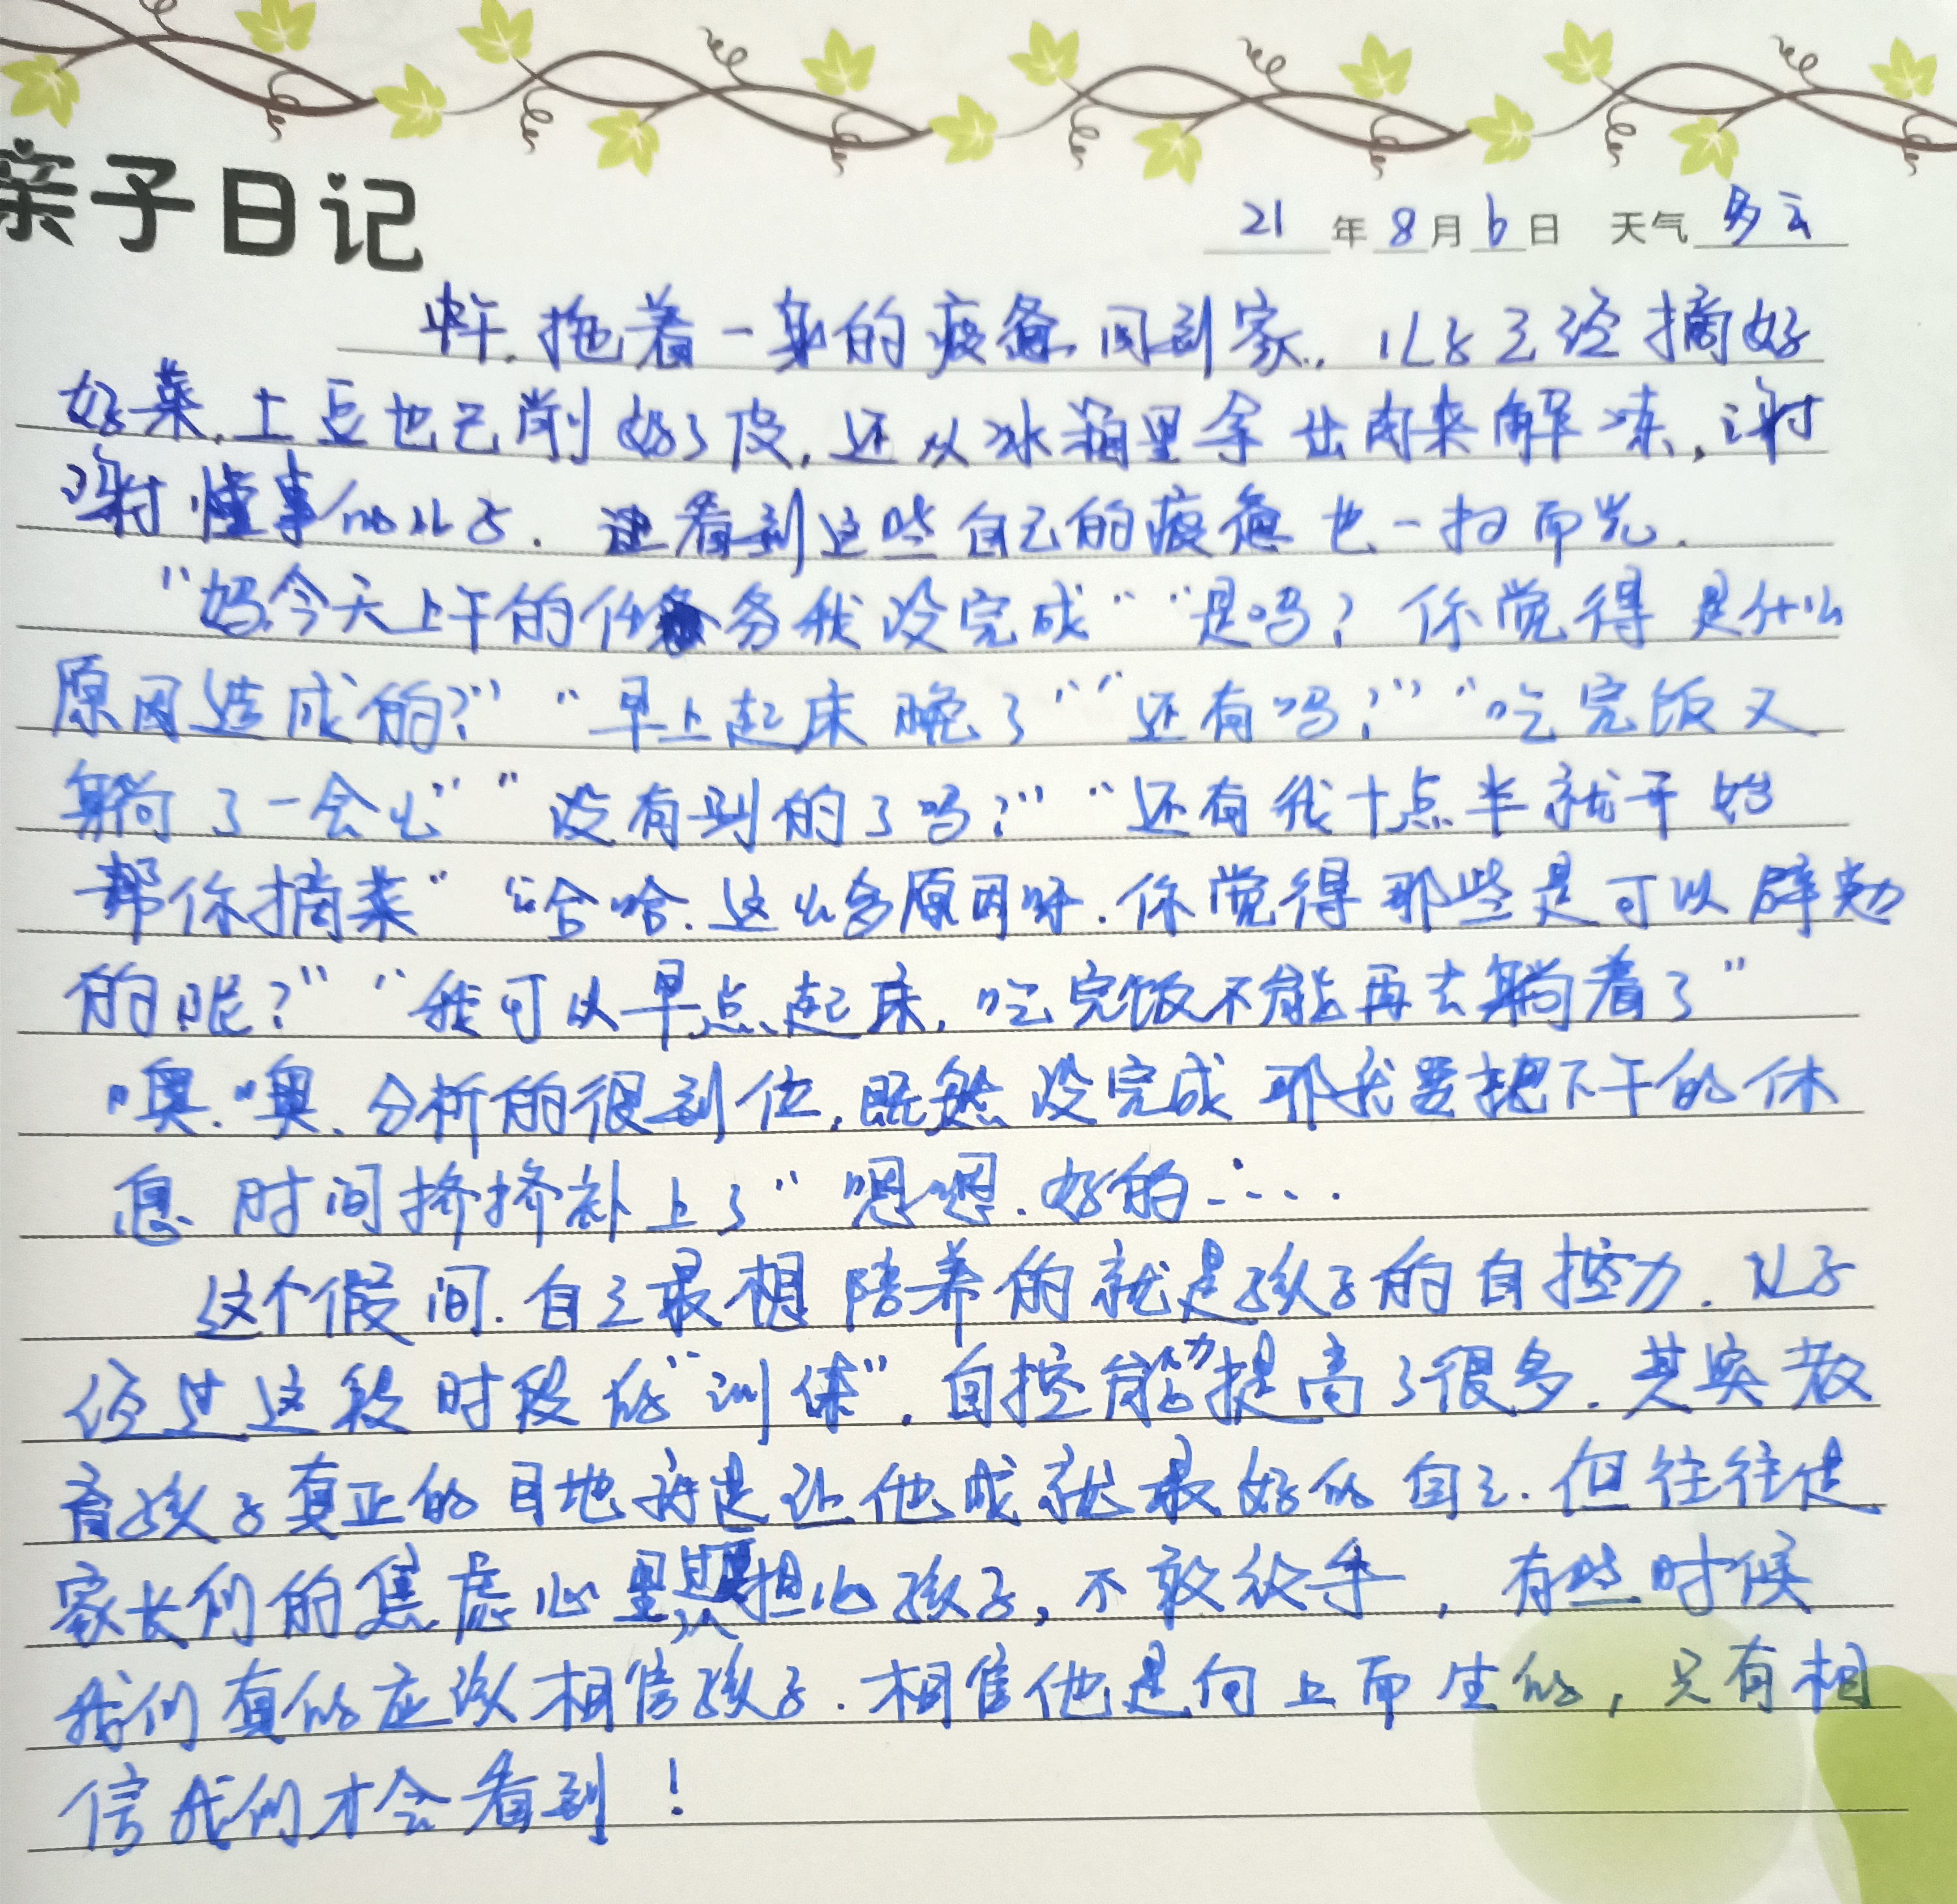 亲子日记
21年8月6日 天气多云
中午,拖着一身的疲惫回到家,儿子已经摘好
好菜,土豆也已削好了皮,还从冰箱里拿出肉来解冻,谢
谢懂事的儿子.看到这些自己的疲惫也一扫而光.
"妈今天上午的任务我没完成""是吗?你觉得是什么
原因造成的?""早上起床晚了""还有吗?""吃完饭又
躺了一会儿""没有别的了吗?""还有我十点半就开始
帮你摘菜""哈哈.这么多原因呀.你觉得那些是可以避免
的呢?""我可以早点起床,吃完饭不能再去躺着了"
"噢.噢、分析的很到位,既然没完成那我要把下午的休
息时间挤挤补上了""嗯嗯.好的……
这个假间.自己最想陪养的就是孩子的自控力.儿子
经过这段时段的"训练",自控能力提高了很多.其实教
育孩子真正的目地就是让他成就最好的自己.但往往是
家长们的焦虑心里担心孩子,不敢放手,有些时候
我们真的应该相信孩子.相信他是向上而生的,只有相
信我们才会看到!